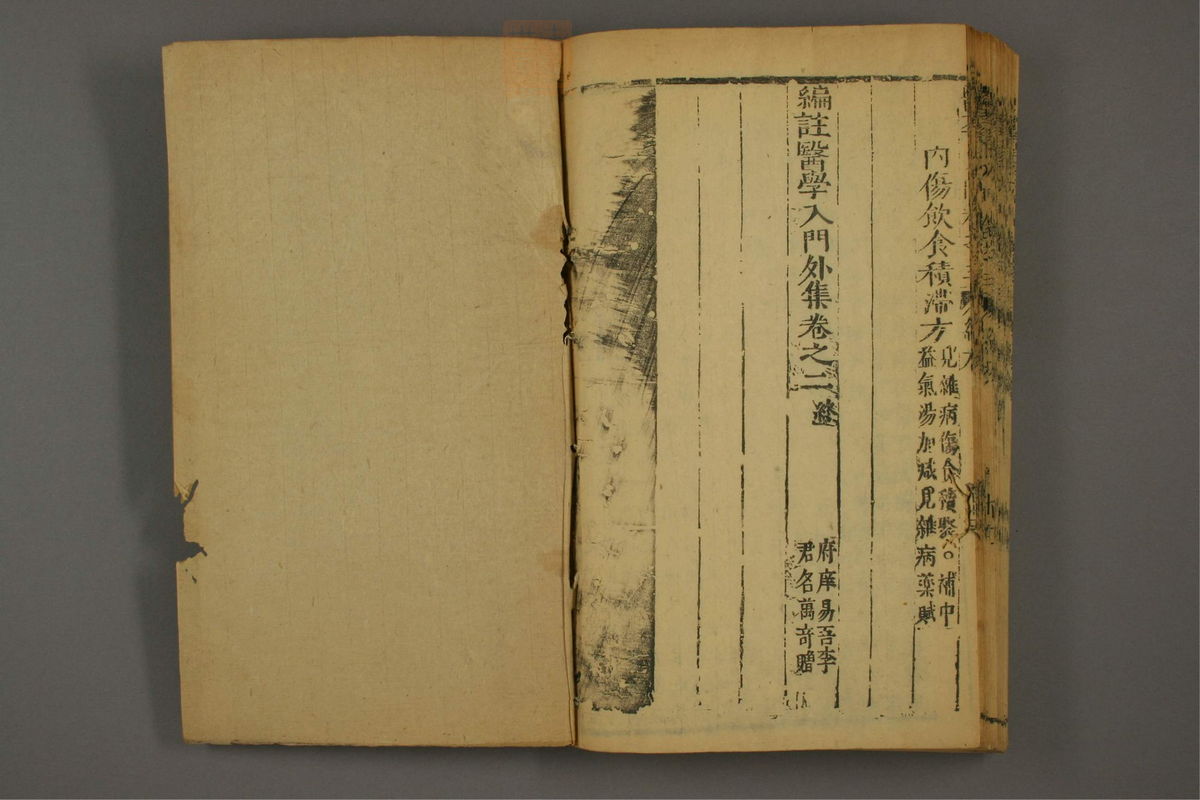 內傷飲食積滯方
見雜病傷食積聚○補中
益氣湯加减見雜病藥賦
編註醫學入門外集卷之二終
府庠易吾李
君名萬奇贈